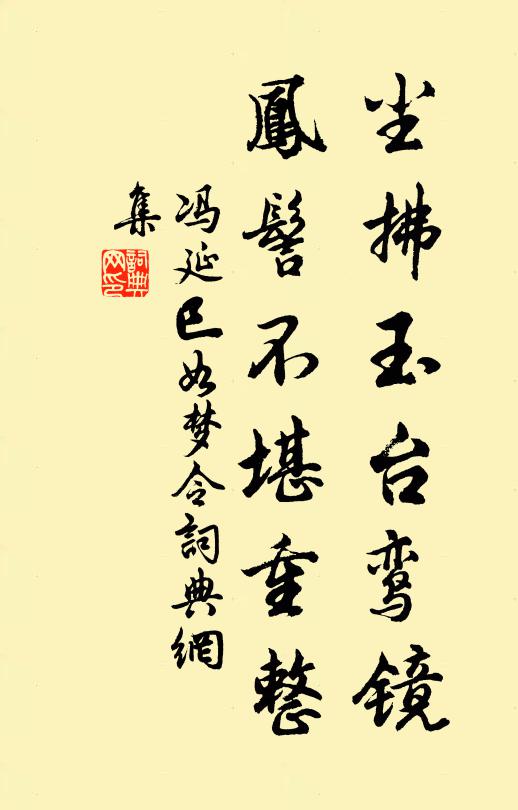 尘拂玉台鸾镜
鳳髻不堪重整
冯延巳如梦令詞典網
集
詞典
网印